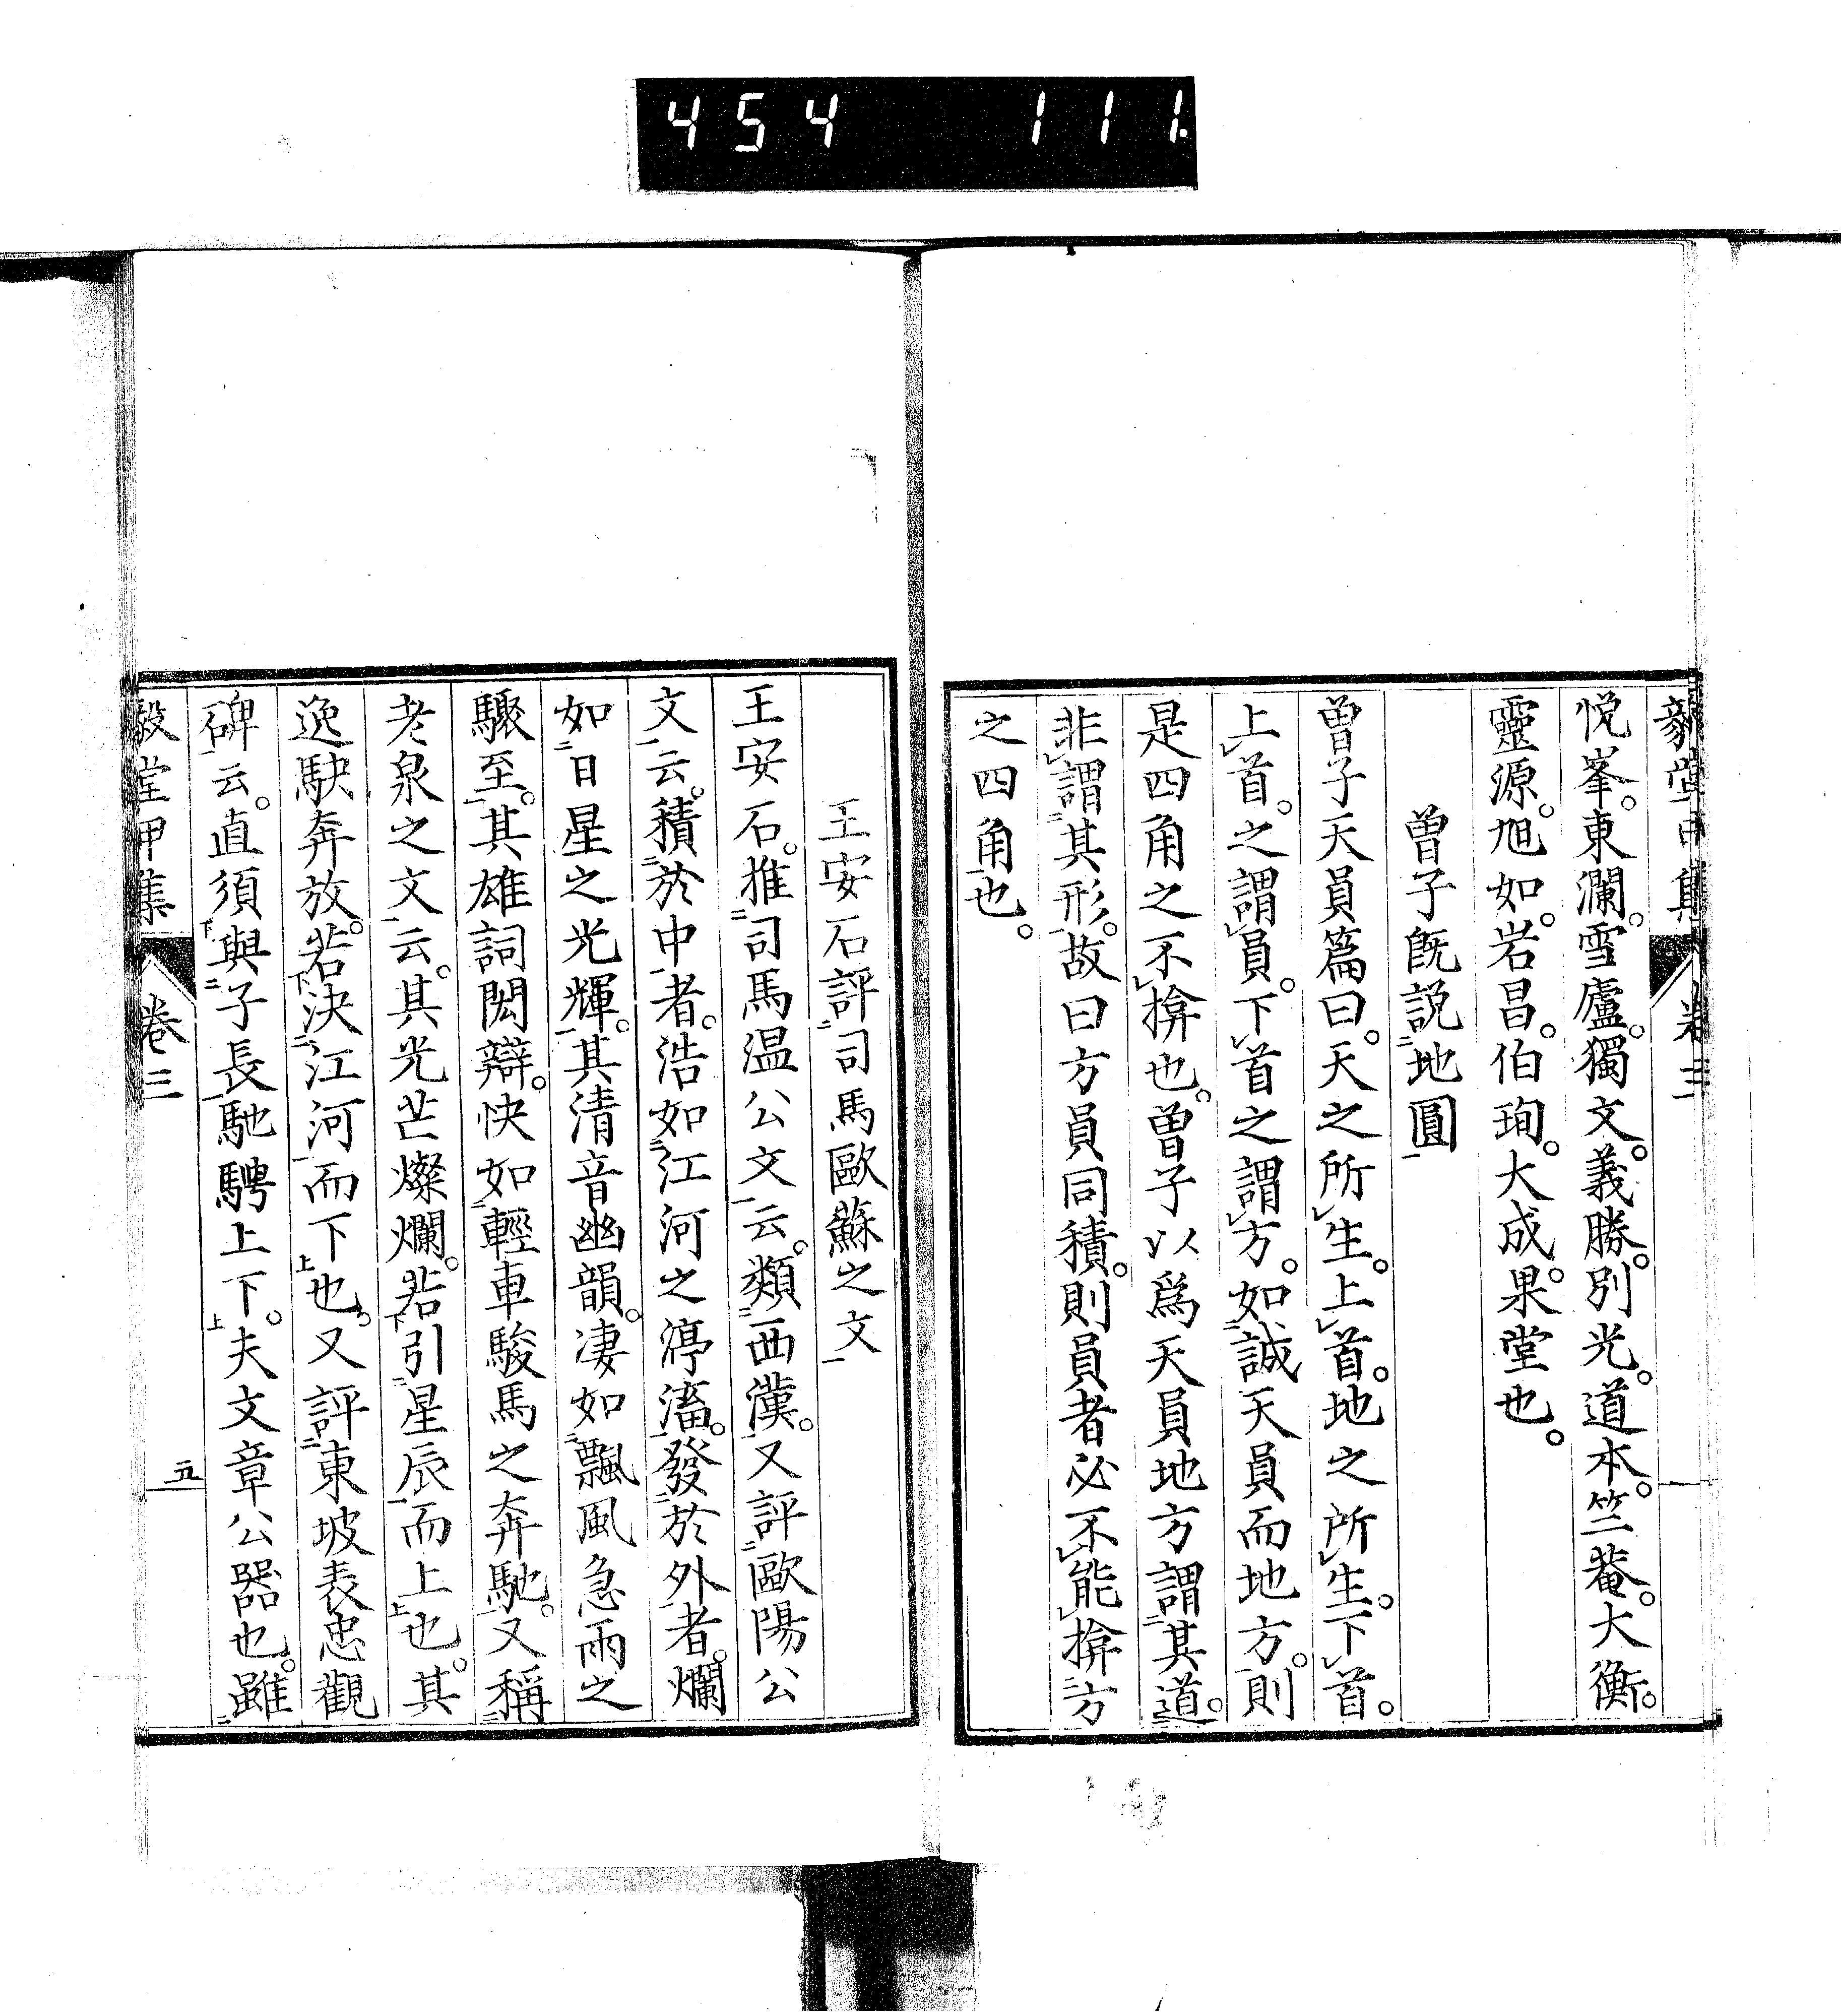 454 111.
毅堂甲集 卷三
悅峯。東瀾。雪廬。獨文。義勝。別光。道本。竺菴。大衡。
靈源。旭如。岩昌。伯珣。大成。果堂也。
曽子既説二地圓一
曽子天員篇曰。天之所レ生。上レ首。地之所レ生。下レ首。
上レ首。之謂レ員。下レ首之謂レ方。如二誠天員而地方一。則
是四角之不レ揜也。曽子以爲天員地方謂二其道一。
非レ謂二其形一。故曰方員同積。則員者必不レ能レ揜二方
之四角一也。
王安石評二司馬歐蘇之文一
王安石。推二司馬温公文一云。類二西漢一。又評二歐陽公
文一云。積二於中一者。浩如二江河之渟滀一。發二於外一者。爛
如二日星之光輝一。其清音幽韻。凄如二飄風急雨之
驟至一。其雄詞閎辯。快如二輕車駿馬之奔馳一。又稱二
老泉之文一云。其光芒燦爛。若下引二星辰一而上上也。其
逸駃奔放。若下決二江河一而下上也。又評二東坡表忠觀
碑一云。直須下與二子長一馳騁上下上。夫文章公器也。雖二
毅堂甲集 卷三 五